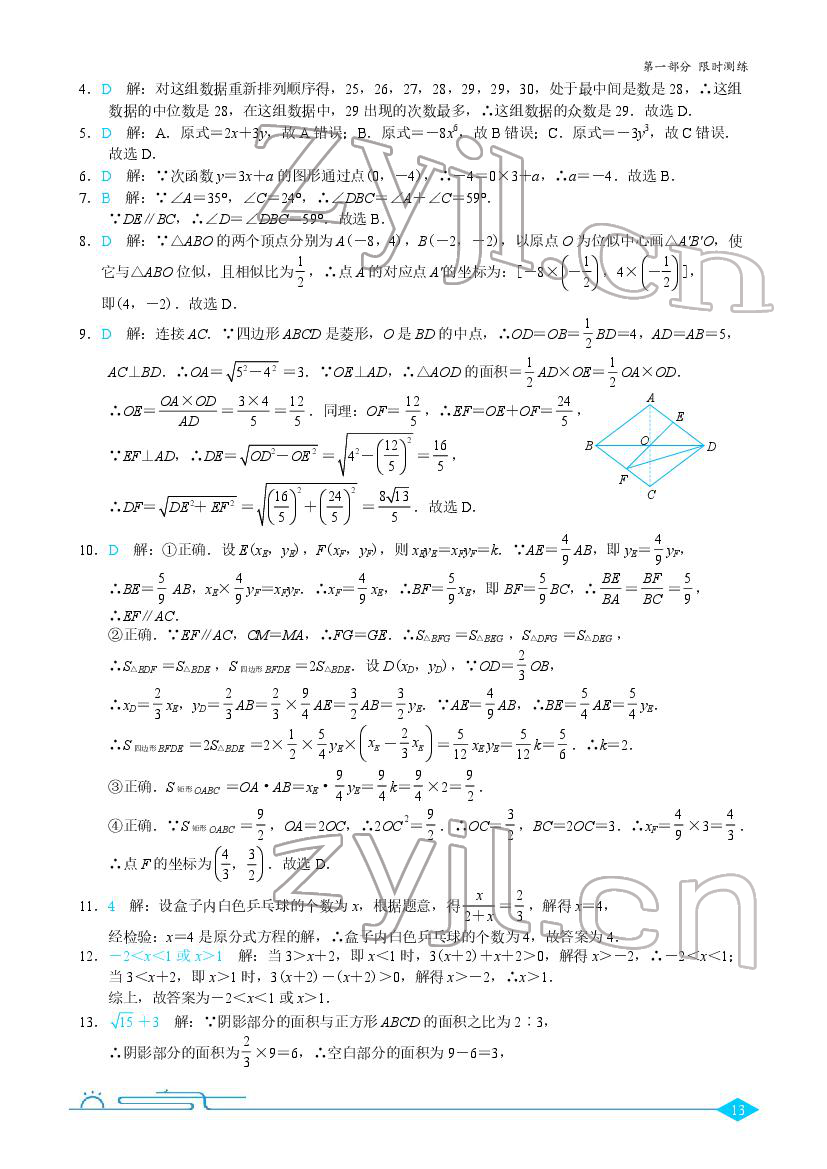 第一部分 限时测练
4. D 解：对这组数据重新排列顺序得，25，26，27，28，29，29，30，处于最中间是数是 28，∴这组
数据的中位数是 28，在这组数据中，29 出现的次数最多，∴这组数据的众数是 29．故选 D．
5. D 解：A．原式=2x+3y，故 A 错误；B．原式=－8x⁶，故 B 错误；C．原式=－3y³，故 C 错误．
故选 D．
6. D 解：∵次函数 y=3x+a 的图形通过点(0，－4)，∴－4=0×3+a，∴a=－4．故选 B．
7. B 解：∵∠A=35°，∠C=24°，∴∠DBC=∠A+∠C=59°．
∵DE∥BC，∴∠D=∠DBC=59°．故选 B．
8. D 解：∵△ABO 的两个顶点分别为 A(－8，4)，B(－2，－2)，以原点 O 为位似中心画△A′B′O，使
它与△ABO 位似，且相似比为1/2，∴点 A 的对应点 A′的坐标为：[－8×(－1/2)，4×(－1/2)]，
即(4，－2)．故选 D．
9. D 解：连接 AC．∵四边形 ABCD 是菱形，O 是 BD 的中点，∴OD=OB=1/2 BD=4，AD=AB=5，
AC⊥BD．∴OA=√(5²－4²)=3．∵OE⊥AD，∴△AOD 的面积=1/2 AD×OE=1/2 OA×OD．
∴OE=(OA×OD)/AD=(3×4)/5=12/5．同理：OF=12/5，∴EF=OE+OF=24/5，
∵EF⊥AD，∴DE=√(OD²－OE²)=√(4²－(12/5)²)=16/5，
∴DF=√(DE²+EF²)=√((16/5)²+(24/5)²)=8√13/5．故选 D．
A
E
B
O
D
F
C
10. D 解：①正确．设 E(x_E，y_E)，F(x_F，y_F)，则 x_E y_E=x_F y_F=k．∵AE=4/9 AB，即 y_E=4/9 y_F，
∴BE=5/9 AB，x_E×4/9 y_F=x_F y_F．∴x_F=4/9 x_E，∴BF=5/9 x_E，即 BF=5/9 BC，∴BE/BA=BF/BC=5/9，
∴EF∥AC．
②正确．∵EF∥AC，CM=MA，∴FG=GE．∴S△BFG=S△BEG，S△DFG=S△DEG，
∴S△BDF=S△BDE，S四边形BFDE=2S△BDE．设 D(x_D，y_D)，∵OD=2/3 OB，
∴x_D=2/3 x_E，y_D=2/3 AB=2/3×9/4 AE=3/2 AB=3/2 y_E．∵AE=4/9 AB，∴BE=5/4 AE=5/4 y_E．
∴S四边形BFDE=2S△BDE=2×1/2×5/4 y_E×(x_E－2/3 x_E)=5/12 x_E y_E=5/12 k=5/6．∴k=2．
③正确．S矩形OABC=OA·AB=x_E·9/4 y_E=9/4 k=9/4×2=9/2．
④正确．∵S矩形OABC=9/2，OA=2OC，∴2OC²=9/2．∴OC=3/2，BC=2OC=3．∴x_F=4/9×3=4/3．
∴点 F 的坐标为(4/3，3/2)．故选 D．
11. 4 解：设盒子内白色乒乓球的个数为 x，根据题意，得x/(2+x)=2/3，解得 x=4，
经检验：x=4 是原分式方程的解，∴盒子内白色乒乓球的个数为 4，故答案为 4．
12. －2＜x＜1 或 x＞1 解：当 3＞x+2，即 x＜1 时，3(x+2)+x+2＞0，解得 x＞－2，∴－2＜x＜1；
当 3＜x+2，即 x＞1 时，3(x+2)－(x+2)＞0，解得 x＞－2，∴x＞1．
综上，故答案为－2＜x＜1 或 x＞1．
13. √15+3 解：∵阴影部分的面积与正方形 ABCD 的面积之比为 2∶3，
∴阴影部分的面积为2/3×9=6，∴空白部分的面积为 9－6=3，
13
zyjl.cn
zyjl.cn